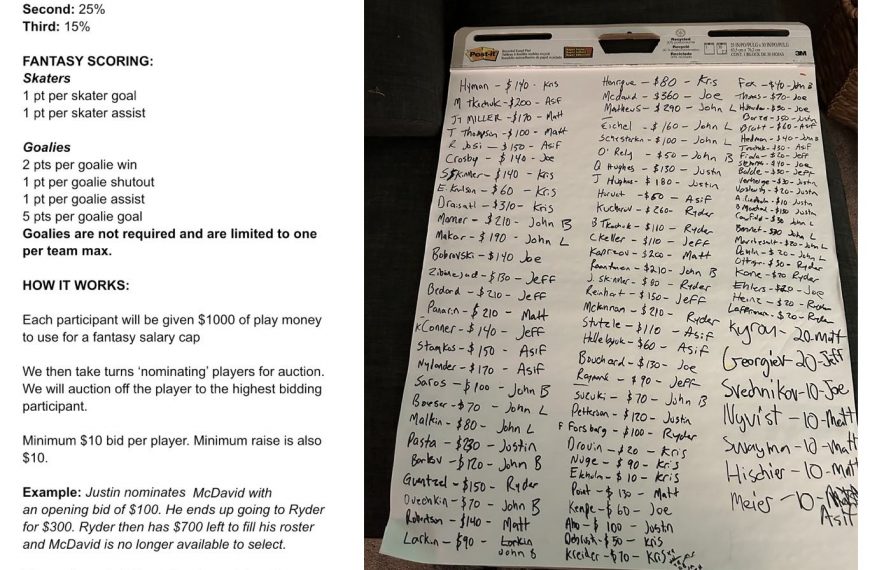 Second: 25%
Third: 15%
FANTASY SCORING:
Skaters
1 pt per skater goal
1 pt per skater assist
Goalies
2 pts per goalie win
1 pt per goalie shutout
1 pt per goalie assist
5 pts per goalie goal
Goalies are not required and are limited to one
per team max.
HOW IT WORKS:
Each participant will be given $1000 of play money
to use for a fantasy salary cap
We then take turns 'nominating' players for auction.
We will auction off the player to the highest bidding
participant.
Minimum $10 bid per player. Minimum raise is also
$10.
Example: Justin nominates McDavid with
an opening bid of $100. He ends up going to Ryder
for $300. Ryder then has $700 left to fill his roster
and McDavid is no longer available to select.
Post-it
3M
Hyman - $140 - Kris
M Tkachuk - $200 - Asif
JT MILLER - $170 - Matt
T Thompson - $100 - Matt
R Josi - $150 - Asif
Crosby - $140 - Joe
S Skinner - $140 - Kris
E. Karlson - $60 - Kris
Draisatl - $310 - Kris
Marner - $210 - John B
Makar - $190 - John L
Bobrovski - $140 Joe
Zibinejad - $130 - Jeff
Bedard - $210 - Jeff
Panarin - $210 - Matt
K Conner - $140 - Jeff
Stamkos - $150 - Asif
Nylander - $170 - Asif
Saros - $100 - John B
Boeser - $70 - John L
Malkin - $80 - John L
Pasta - $230 - Justin
Barkov - $120 - John B
Guentzel - $150 - Ryder
Ovechkin - $70 - John B
Robertson - $140 - Matt
Larkin - $90 - Larkin
John B
Henrique - $80 - Kris
McDavid - $360 - Joe
Matthews - $290 - John L
Eichel - $160 - John L
Schesterkin - $100 - John L
O'Rely - $50 - John B
Q Hughes - $130 - Justin
J Hughes - $180 - Justin
Horvat - $50 - Asif
Kucherov - $260 - Ryder
B Tkachuk - $110 - Ryder
C Keller - $110 - Jeff
Kaprizov - $200 - Matt
Rantanen - $210 - John B
J. Skinner - $80 - Ryder
Reinhart - $150 - Jeff
McKinnon - $210 - Ryder
Stutzle - $110 - Asif
Hellebyok - $60 - Asif
Bouchard - $130 - Joe
$90 - Jeff
Suzuki - $70 - John B
Petterson - $120 - Justin
F Forsberg - $100 - Ryder
Drouin - $20 - Kris
Nuge - $90 - Kris
Ekholm - $10 - Kris
Point - $130 - Matt
Kempe - $60 - Joe
Aho - $100 - Justin
Debrusk - $50 - Kris
Kreider - $70 - Kris
Fox - $40 - John B
Thomas - $70 - Joe
$50 - Joe
$50 - Justin
Bratt - $60 - Asif
Hedman - $40 - John B
$30 - Asif
$20 - Jeff
$40 - Joe
Boldy - $50 - Jeff
Verhaege - $30 - Justin
$20 - Justin
A. Lindholm - $10 Justin
B Marchand - $150 Justin
$30 John L
$90 John L
Marchesault - $20 - John L
$20 - John L
$50 - Ryder
Kane - $20 Ryder
Ehlers - $20 - Joe
Heinz - $20 - Ryder
Lafferriere - $20 - Ryder
Kyrou - 20 - Matt
Georgiev - 20 - Jeff
Svechnikov - 10 - Joe
Nyvist - 10 - Matt
Swayman - 10 - Matt
Hischier - 10 - Matt
Meier - 10 - Matt
Asif